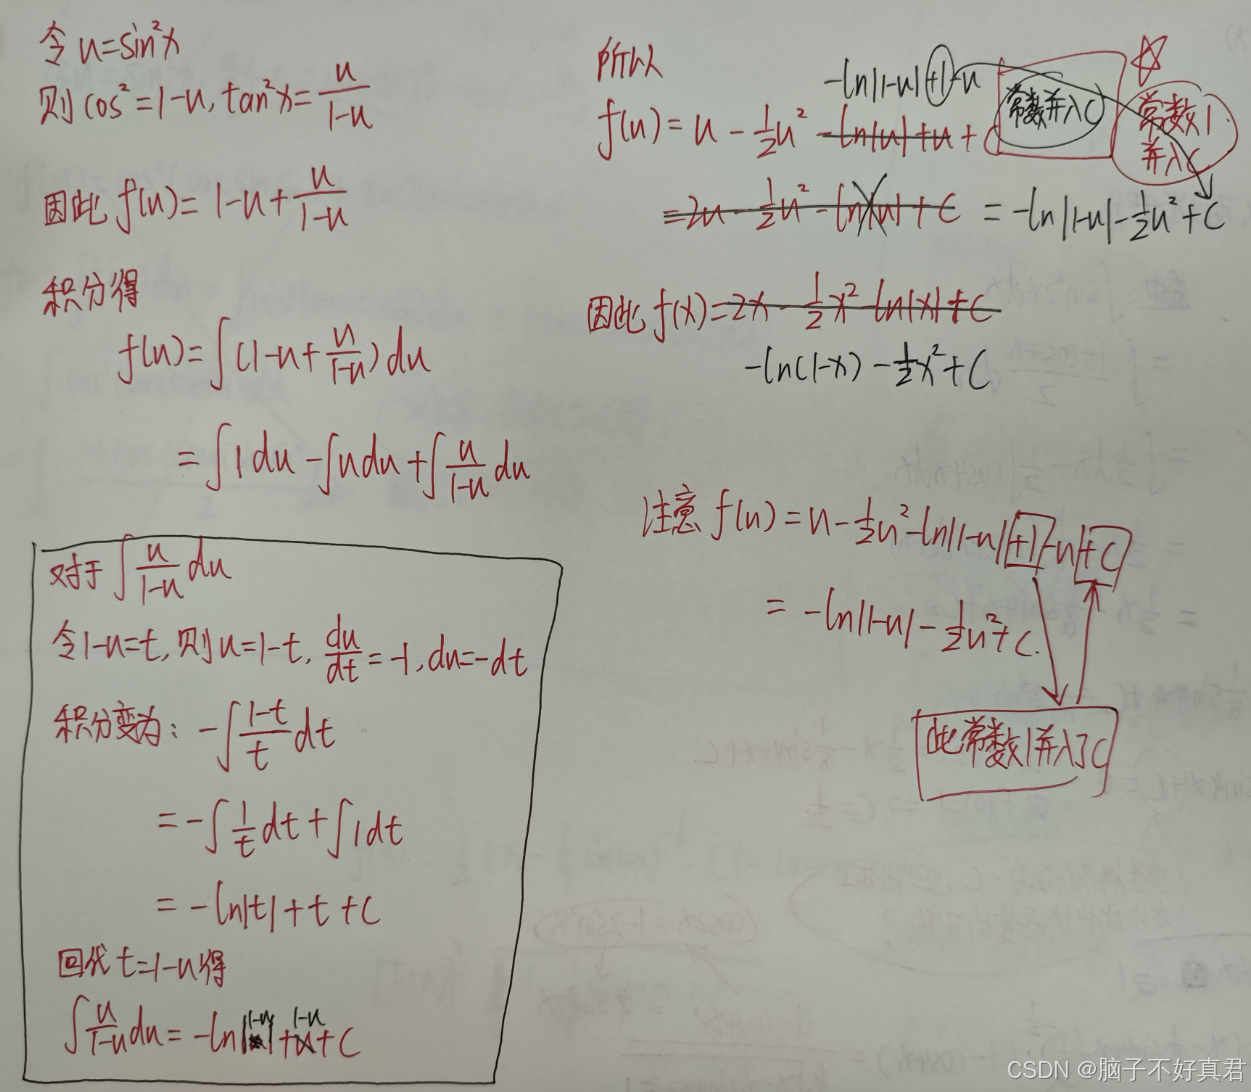 令u=sin²x
则cos²=1-u, tan²x=u/(1-u)
因此f(u)=1-u+u/(1-u)
积分得
f(u)=∫(1-u+u/(1-u))du
=∫1du-∫udu+∫u/(1-u)du
对于∫u/(1-u)du
令1-u=t,则u=1-t, du/dt=-1, du=-dt
积分变为: -∫(1-t)/t dt
=-∫1/t dt+∫1dt
=-ln|t|+t+C
回代t=1-u得
∫u/(1-u)du=-ln|1-u|+1-u+C
所以
-ln|1-u|+1-u
常数并入C
常数1
并入C
f(u)=u-½u²-ln|u|+u+C
=2u-½u²-ln|u|+C=-ln|1-u|-½u²+C
因此f(x)=2x-½x²-ln|x|+C
-ln(1-x)-½x²+C
注意f(u)=u-½u²-ln|1-u|+1-u+C
=-ln|1-u|-½u²+C.
此常数1并入了C
CSDN @脑子不好真君